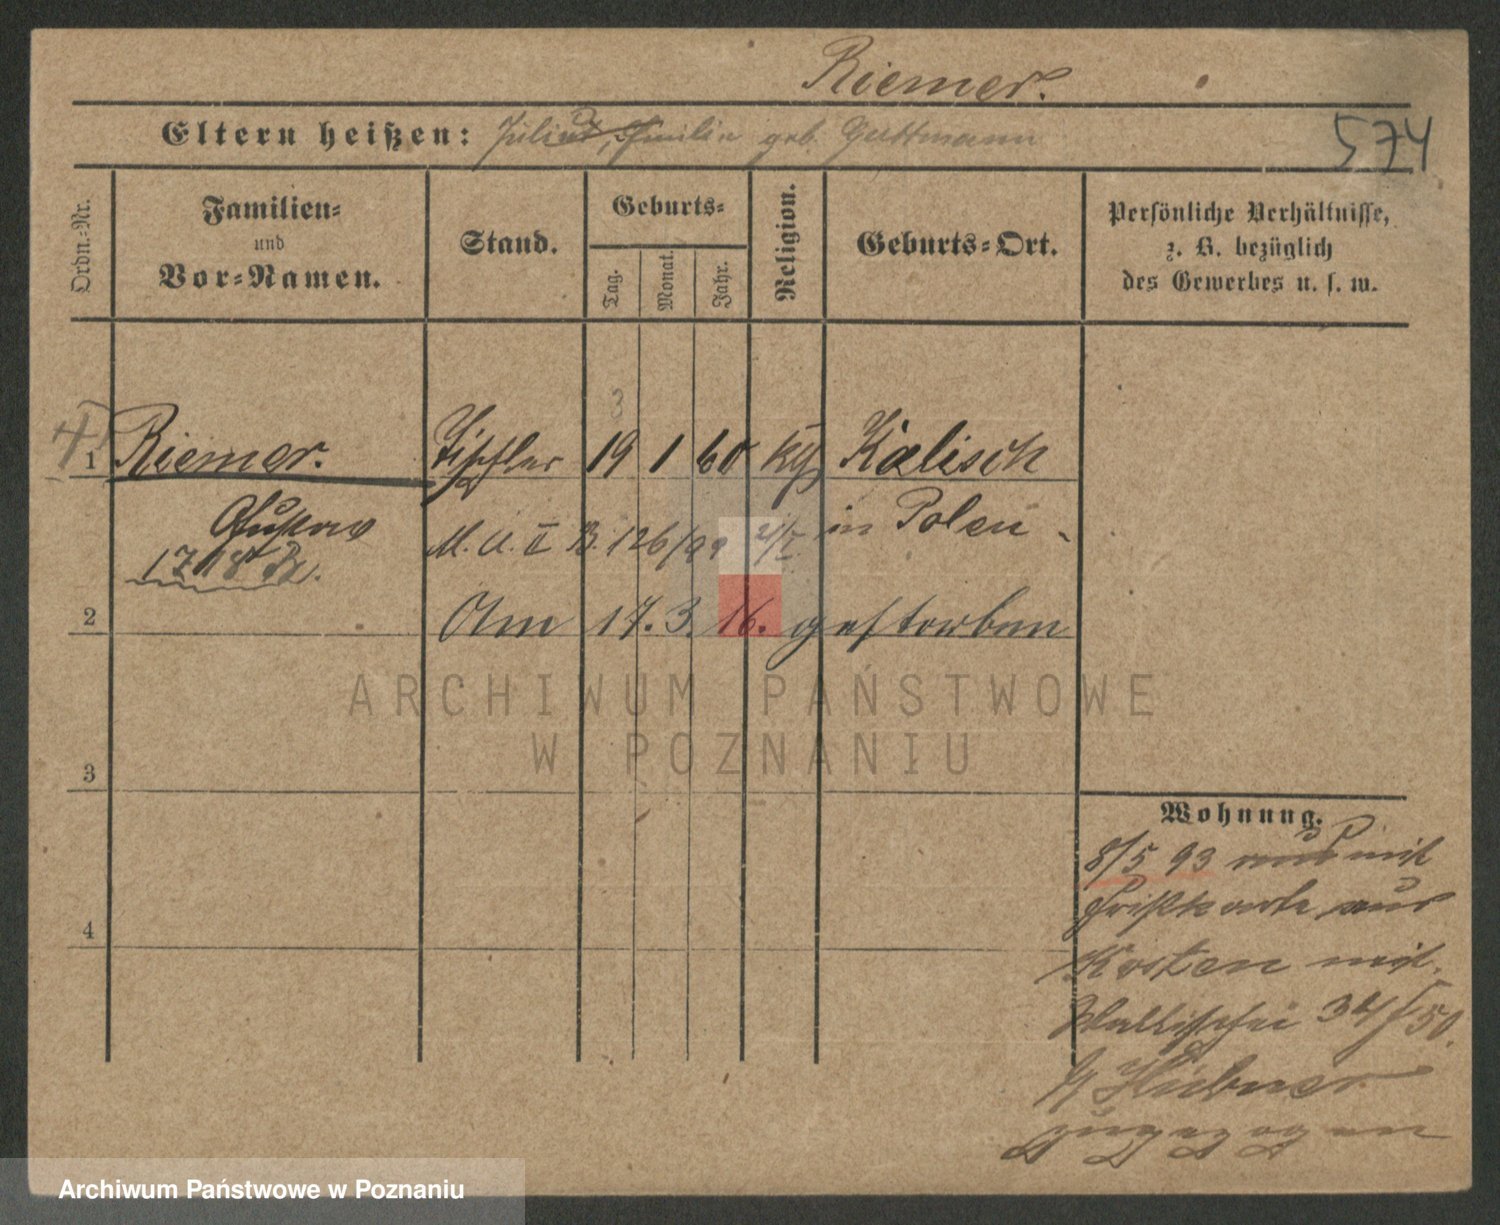 Riemer.
Eltern heißen: Julius, Emilie geb. Guttmann
574
Ordn.-Nr.
Familien-
und
Vor-Namen.
Stand.
Geburts-
Tag.
Monat.
Jahr.
Religion.
Geburts-Ort.
Persönliche Verhältnisse,
z. B. bezüglich
des Gewerbes u. s. w.
1 Riemer. Tischler 19 1 60 Kalisch
Gustav M. A. II B. 126/99 in Polen
1718
2 Am 17. 3. 16. gestorben
ARCHIWUM PAŃSTWOWE
W POZNANIU
3
Wohnung.
8/5 93 mit
aus
4
Kosten
Wallischei 34/50.
Hübner
zugezogen
Archiwum Państwowe w Poznaniu